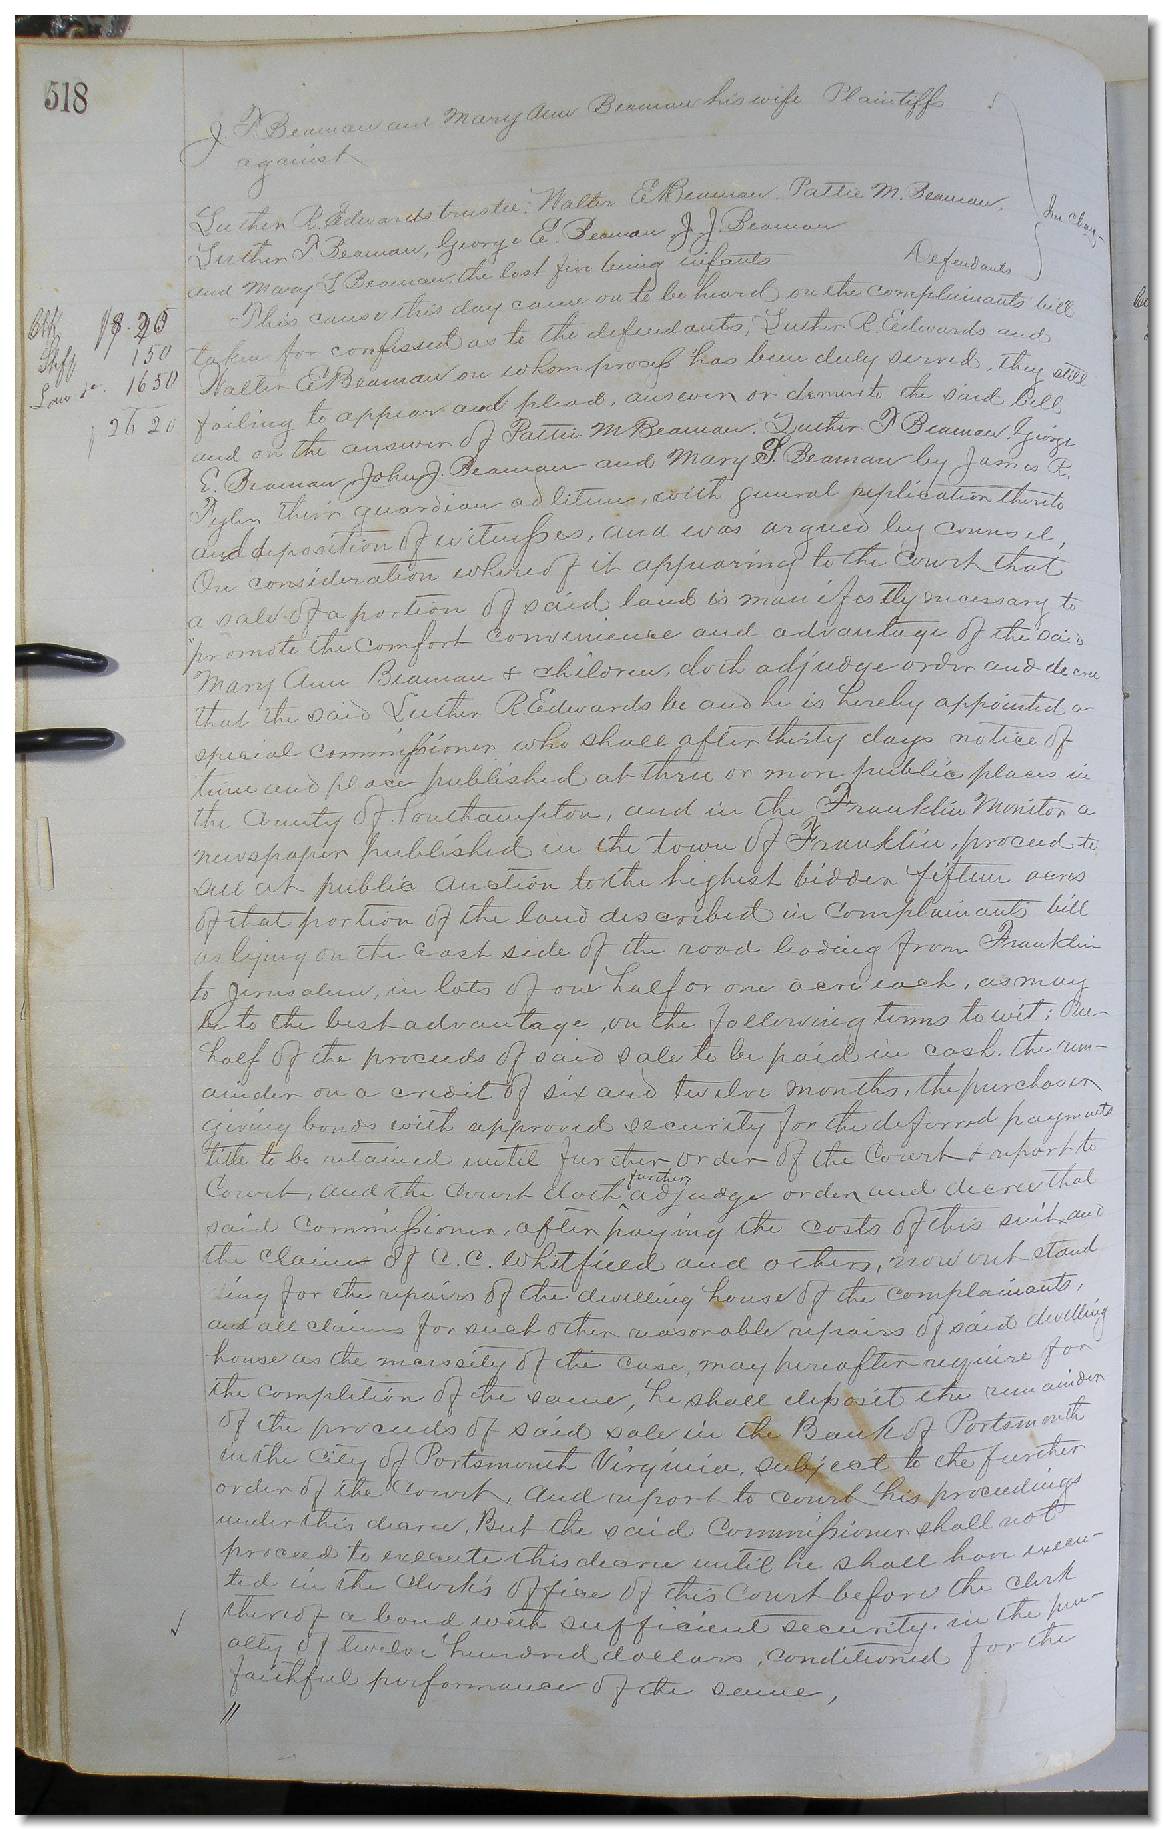 518
J. T. Beaman and Mary Ann Beaman his wife Plaintiffs
against
Luther R. Edwards trustee, Walter E. Beaman, Pattie M. Beaman,
Luther T Beaman, George E. Beaman J. J. Beaman
and Mary S Beaman, the last five being infants Defendants
In Chay-
This cause this day came on to be heard on the complainants bill
taken for confessed as to the defendants, Luther R. Edwards and
Walter E Beaman on whom process has been duly served, they still
failing to appear and plead, answer or demur to the said bill
and on the answer of Pattie M Beaman, Luther T Beaman, George
E. Beaman, John J. Beaman and Mary S. Beaman by James R.
their guardian ad litem, with general replication thereto
and deposition of witnesses, and was argued by counsel,
On consideration whereof it appearing to the Court that
a sale of a portion of said land is manifestly necessary to
promote the comfort convenience and advantage of the said
Mary Ann Beaman & children, doth adjudge order and decree
that the said Luther R Edwards be and he is hereby appointed a
special commissioner who shall after thirty days notice of
time and place published at three or more public places in
the County of Southampton, and in the Franklin Monitor a
newspaper published in the town of Franklin, proceed to
sell at public auction to the highest bidder fifteen acres
of that portion of the land described in complainants bill
as lying on the east side of the road leading from Franklin
to Jerusalem, in lots of one half or one acre each, as may
be to the best advantage, on the following terms to wit: One-
half of the proceeds of said sale to be paid in cash. the rem-
ainder on a credit of six and twelve months, the purchaser
giving bonds with approved security for the deferred payments
title to be retained until further order of the Court & report to
Court, and the Court doth further adjudge order and decree that
said Commissioner, after paying the costs of this suit and
the claims of C. C. Whitfield and others, now out stand
ing for the repairs of the dwelling house of the complainants,
and all claims for such other reasonable repairs of said dwelling
house as the necessity of the case, may hereafter require for
the completion of the same, he shall deposit the remainder
of the proceeds of said sale in the Bank of Portsmouth
in the City of Portsmouth Virginia, subject to the further
order of the Court, and report to court his proceedings
under this decree, But the said Commissioner shall not
proceed to execute this decree until he shall have execu-
ted in the Clerk's office of this Court before the clerk
thereof a bond with sufficient security, in the pen-
alty of twelve hundred dollars, conditioned for the
faithful performance of the same,
"
Clk
Shff 150
1650
26 20